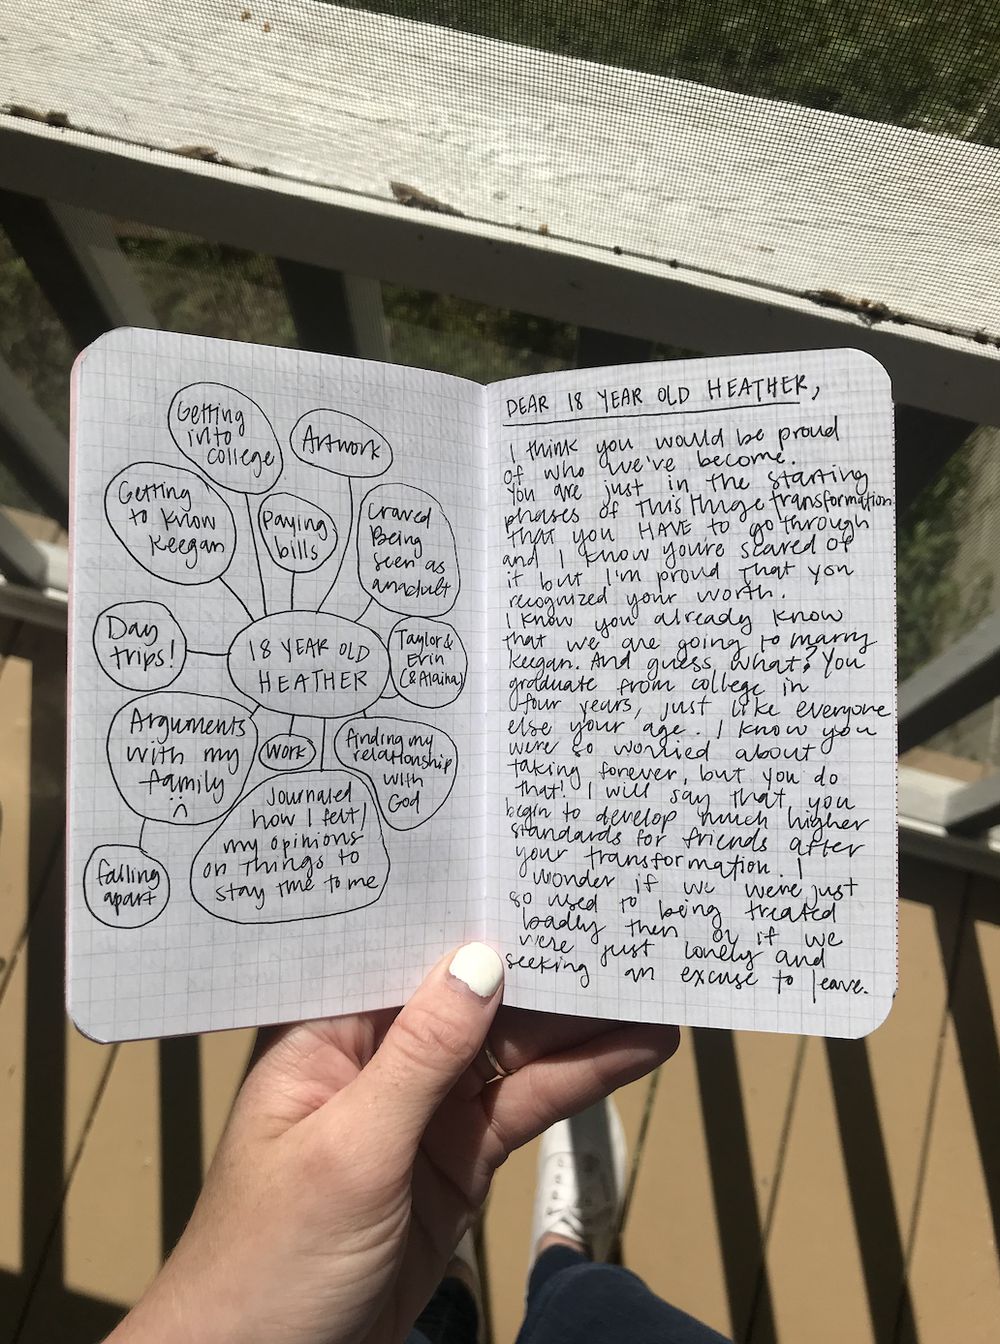 Getting
into
college
Artwork
Getting
to know
Keegan
Paying
bills
Craved
Being
seen as
an adult
Day
trips!
18 YEAR OLD
HEATHER
Taylor &
Erin
(& Alaina)
Arguments
with my
family
:(
work
finding my
relationship
with
God
Journaled
how I felt/
my opinions
on things to
stay true to me
falling
apart
DEAR 18 YEAR OLD HEATHER,
I think you would be proud
of who we've become.
You are just in the starting
phases of this huge transformation
that you HAVE to go through
and I know you're scared of
it but I'm proud that you
recognized your worth.
I know you already know
that we are going to marry
Keegan. And guess what? You
graduate from college in
four years, just like everyone
else your age. I know you
were so worried about
taking forever, but you do
that! I will say that you
begin to develop much higher
standards for friends after
your transformation. I
wonder if we were just
so used to being treated
badly then or if we
were just lonely and
seeking an excuse to leave.